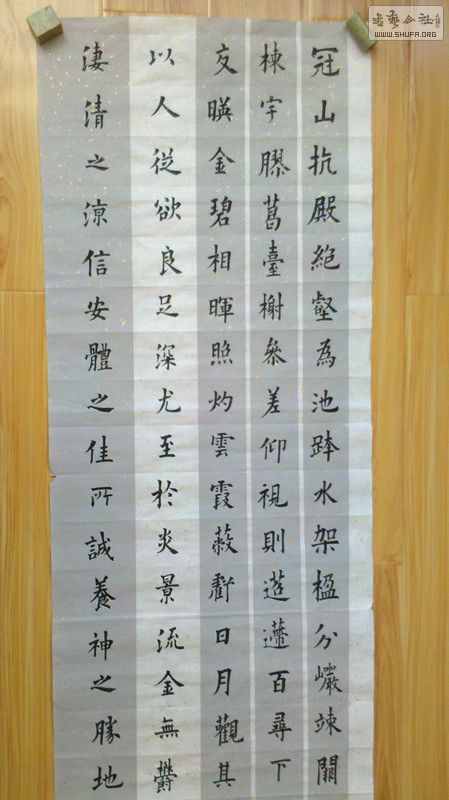 冠山抗殿絕壑為池跨水架楹分巖竦闕
棟宇膠葛臺榭參差仰視則迢遰百尋下
交暎金碧相暉照灼雲霞蔽虧日月觀其
以人從欲良足深尤至於炎景流金無鬱
淒清之涼信安體之佳所誠養神之勝地
書藝公社
WWW.SHUFA.ORG